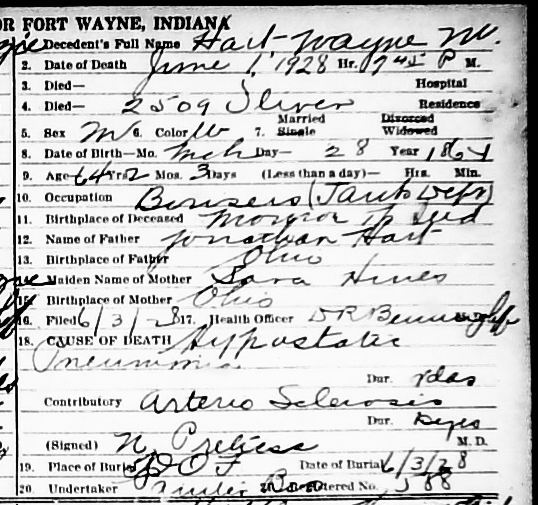 OR FORT WAYNE, INDIANA
Decedent's Full Name Hart-Wayne M.
2. Date of Death June 1, 1928 Hr. 7 45 P M.
3. Died— Hospital
4. Died— 2509 Residence
Married Divorced
5. Sex M 6. Color W 7. Single Widowed
8. Date of Birth—Mo. Mch Day— 28 Year 1864
9. Age 64 Yrs 2 Mos. 3 Days (Less than a day)— Hrs. Min.
10. Occupation Bowsers (Tank Dept)
11. Birthplace of Deceased Monroe Ind
12. Name of Father Jonathan Hart
13. Birthplace of Father Ohio
Maiden Name of Mother Sara Hines
Birthplace of Mother Ohio
16. Filed 6/3/28 17. Health Officer DR
18. CAUSE OF DEATH Hypostatic
Pneumonia
Dur. das
Contributory Arterio Sclerosis
Dur.
(Signed) N M. D.
19. Place of Burial I O O F Date of Burial 6/3/28
20. Undertaker Registered No. 588